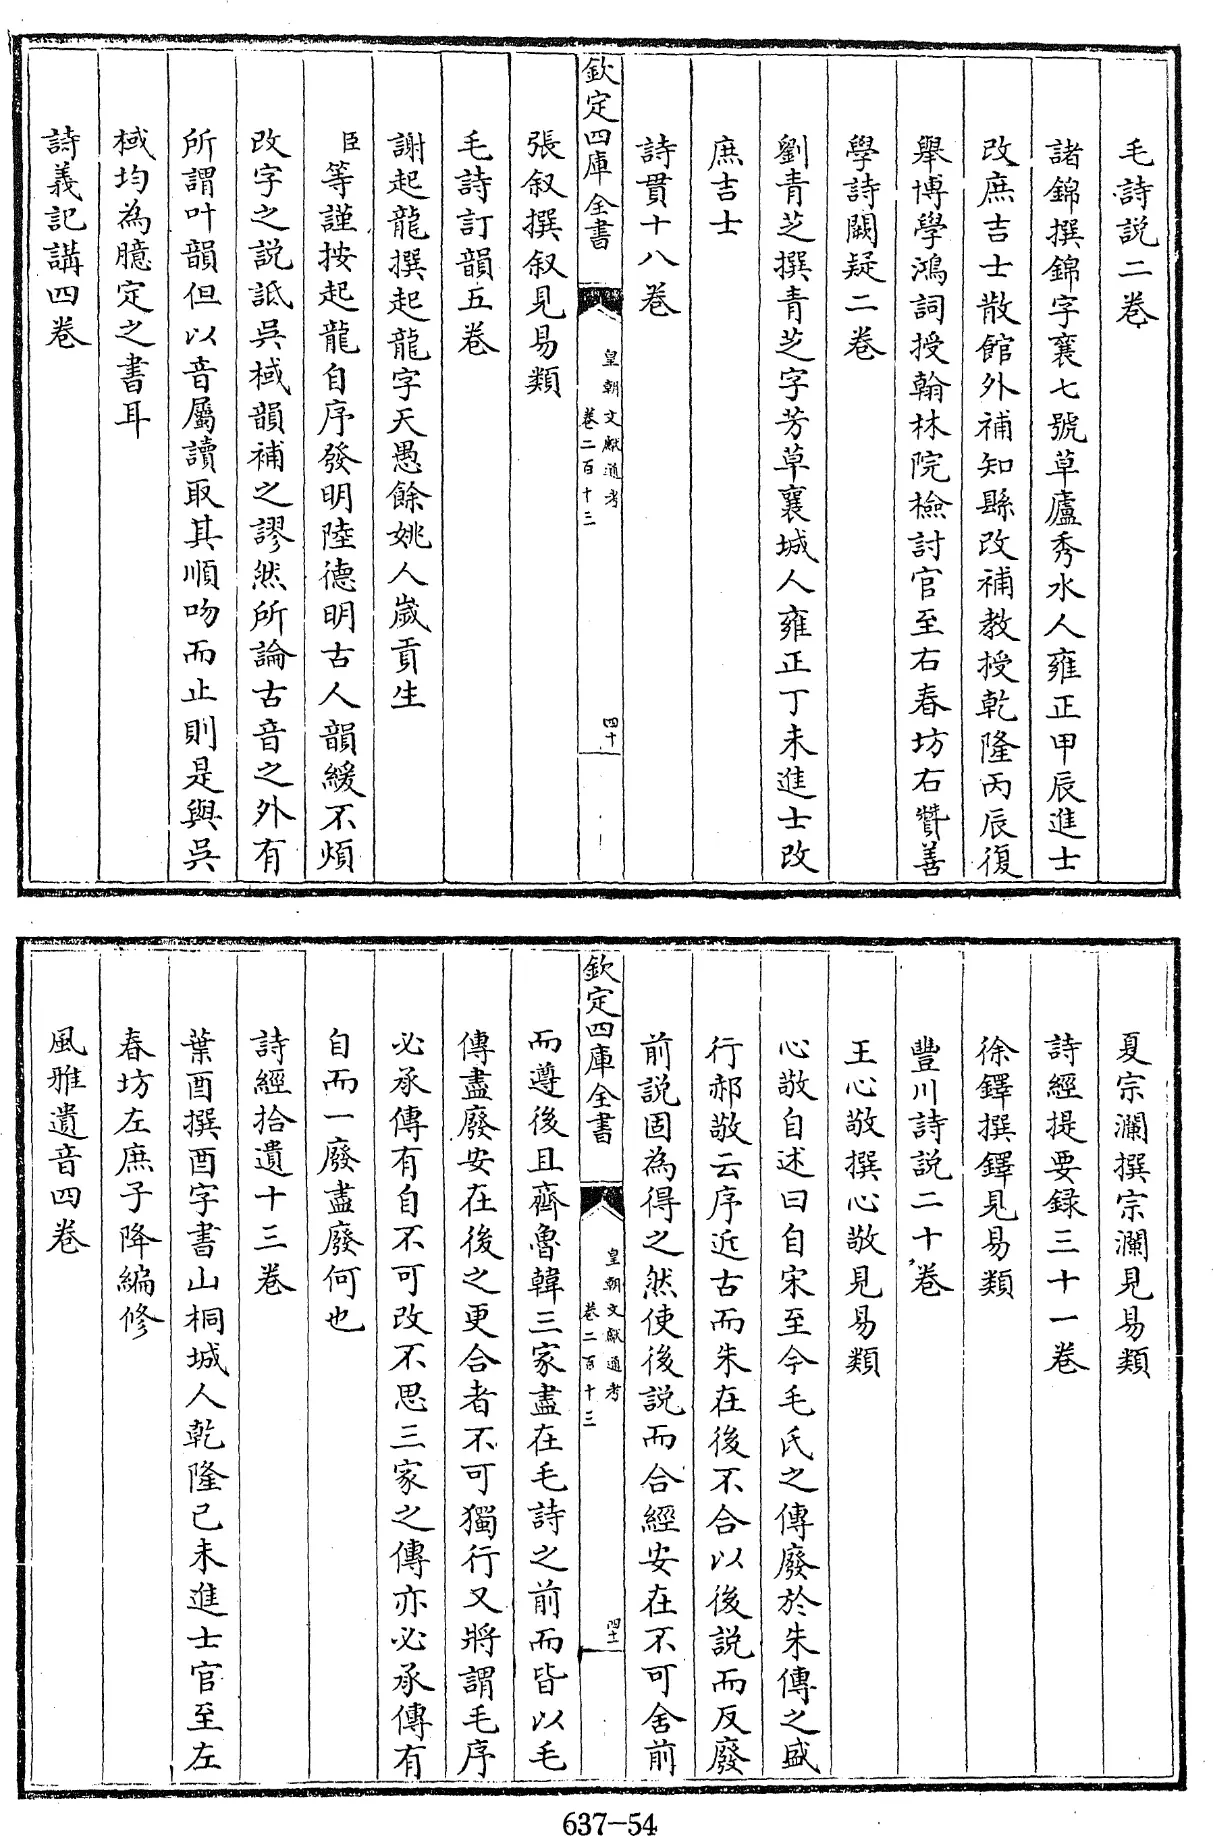 毛詩説二卷
諸錦撰錦字襄七號草廬秀水人雍正甲辰進士
改庶吉士散館外補知縣改補教授乾隆丙辰復
舉博學鴻詞授翰林院檢討官至右春坊右贊善
學詩闕疑二卷
劉青芝撰青芝字芳草襄城人雍正丁未進士改
庶吉士
詩貫十八卷
欽定四庫全書
皇朝文獻通考
卷二百十三
四十
張叙撰叙見易類
毛詩訂韻五卷
謝起龍撰起龍字天愚餘姚人歲貢生
臣等謹按起龍自序發明陸德明古人韻緩不煩
改字之説詆吳棫韻補之謬然所論古音之外有
所謂叶韻但以音屬讀取其順吻而止則是與吳
棫均為臆定之書耳
詩義記講四卷
夏宗瀾撰宗瀾見易類
詩經提要録三十一卷
徐鐸撰鐸見易類
豐川詩説二十卷
王心敬撰心敬見易類
心敬自述曰自宋至今毛氏之傳廢於朱傳之盛
行郝敬云序近古而朱在後不合以後説而反廢
前説固為得之然使後説而合經安在不可舍前
欽定四庫全書
皇朝文獻通考
卷二百十三
四十一
而遵後且齊魯韓三家盡在毛詩之前而皆以毛
傳盡廢安在後之更合者不可獨行又將謂毛序
必承傳有自不可改不思三家之傳亦必承傳有
自而一廢盡廢何也
詩經拾遺十三卷
葉酉撰酉字書山桐城人乾隆己未進士官至左
春坊左庶子降編修
風雅遺音四卷
637-54